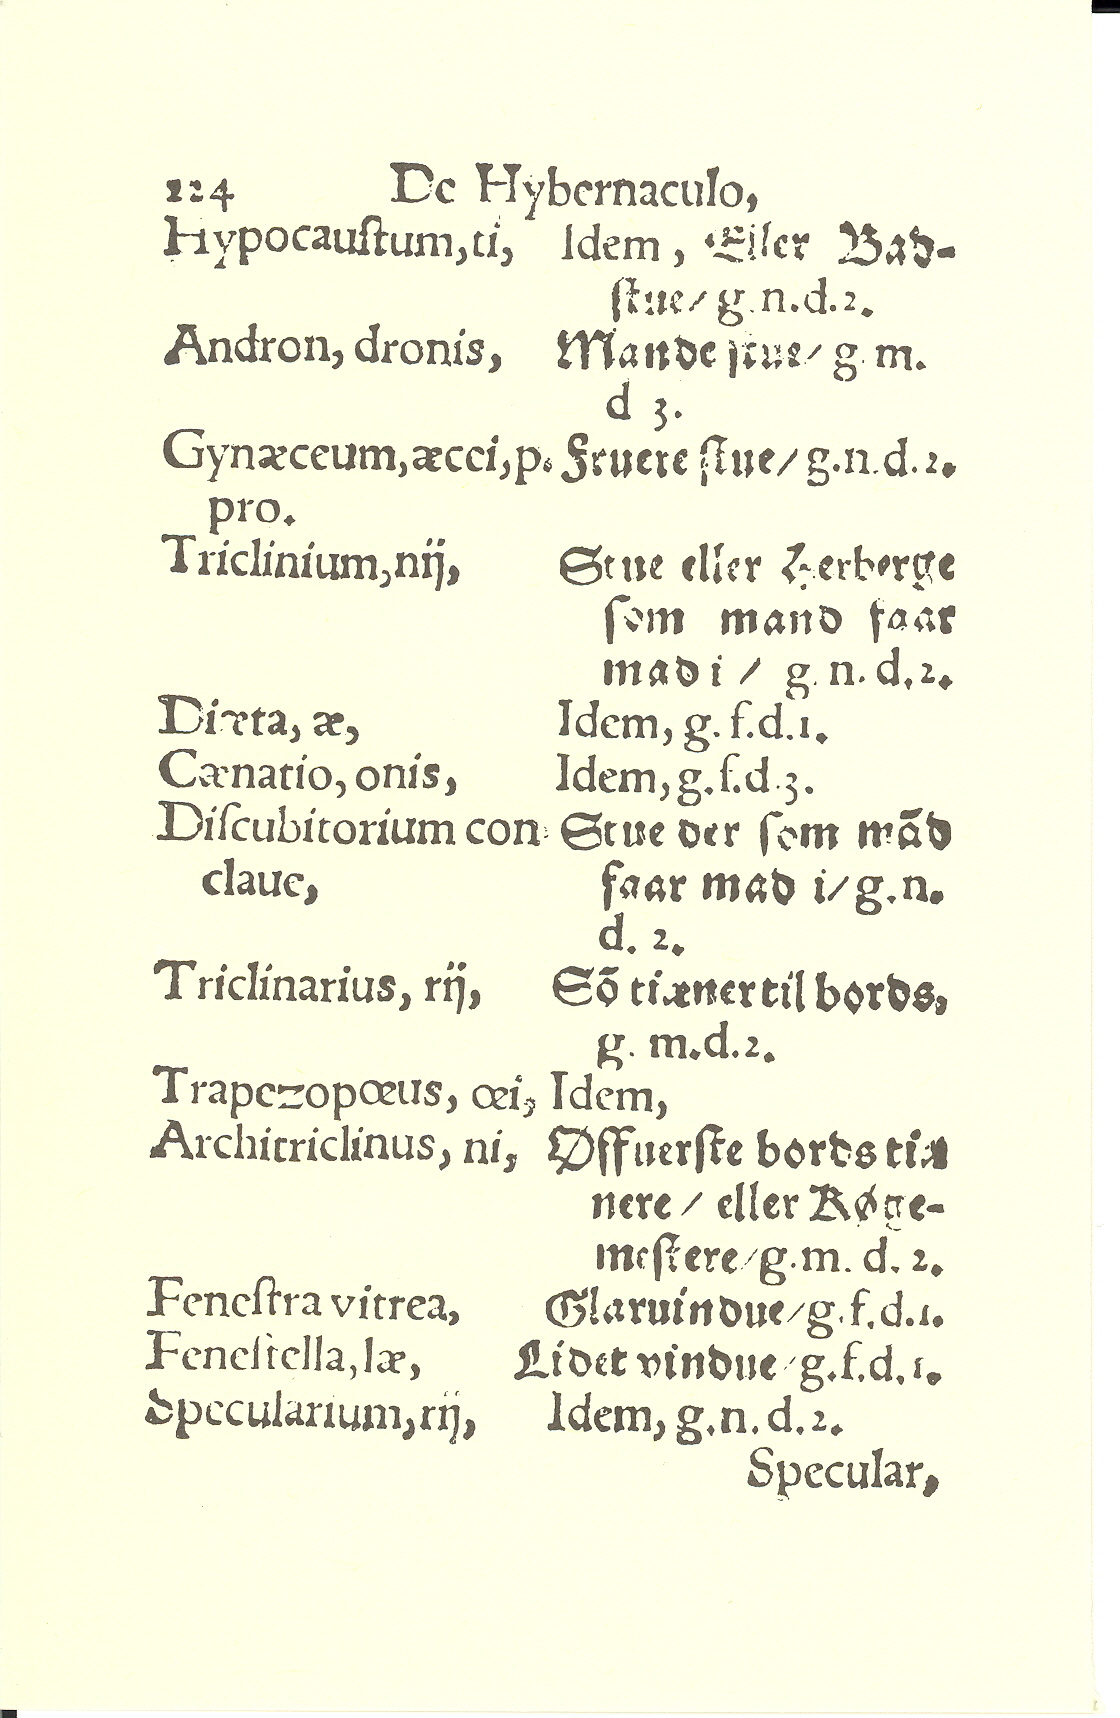 224 De Hybernaculo,
Hypocauſtum, ti, Idem, Eller Bad-
ſtue/ g.n.d.2.
Andron, dronis, Mande ſtue/ g.m.
d 3.
Gynæceum, æcei, p. Fruere ſtue/ g.n.d.2.
pro.
Triclinium, nij, Stue eller Herberge
ſom mand faar
mad i / g.n.d.2.
Diæta, æ, Idem, g.f.d.1.
Cænatio, onis, Idem, g.f.d.3.
Diſcubitorium con- Stue der ſom mãd
claue, faar mad i/ g.n.
d. 2.
Triclinarius, rij, Sõ tiæner til bords,
g. m.d.2.
Trapezopœus, œi, Idem,
Architriclinus, ni, Øffuerſte bords tiæ
nere / eller Køge-
meſtere/ g.m.d.2.
Feneſtra vitrea, Glaruindue/ g.f.d.1.
Feneſtella, læ, Lidet vindue/ g.f.d.1.
Specularium, rij, Idem, g.n.d.2.
Specular,